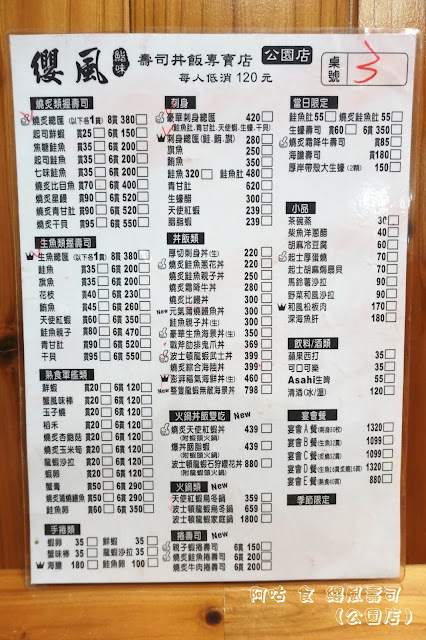 纓風 鮨味 壽司丼飯專賣店 公園店
每人低消 120 元
桌號 3
燒炙類握壽司
燒炙總匯 (以下各1貫) 8貫 380
起司鮮蝦 貫25 6貫 150
焦糖鮭魚 貫35 6貫 200
起司鮭魚 貫35 6貫 200
七味鮭魚 貫35 6貫 200
燒炙比目魚 貫70 6貫 400
燒炙星鰻 貫90 6貫 520
燒炙青甘 貫90 6貫 520
燒炙干貝 貫95 6貫 550
生魚類握壽司
生魚總匯 (以下各1貫) 8貫 380
鮭魚 貫35 6貫 200
旗魚 貫35 6貫 200
花枝 貫40 6貫 230
鮪魚 貫45 6貫 260
天使紅蝦 貫60 6貫 350
鮭魚親子 貫80 6貫 470
青甘 貫90 6貫 520
干貝 貫95 6貫 550
熟食軍艦類
鮮蝦 貫20 6貫 120
蟹風味棒 貫20 6貫 120
玉子燒 貫20 6貫 120
稻禾 貫20 6貫 120
燒炙杏鮑菇 貫20 6貫 120
燒炙玉米筍 貫20 6貫 120
龍蝦沙拉 貫35 6貫 200
蝦卵 貫35 6貫 200
蟹膏 貫50 6貫 290
燒炙蒲燒鰻魚 貫50 6貫 290
鮭魚卵 貫60 6貫 350
手捲類
蝦卵 35 鮮蝦 35
蟹味棒 35 龍蝦沙拉 35
海膽 180 鮭魚卵 100
刺身
豪華刺身總匯 420
(鮭魚,青甘肚,天使蝦,生蠔,干貝)
刺身總匯(鮭.鮪.旗) 280
旗魚 240
鮪魚 280
鮭魚 320 鮭魚肚 480
青甘肚 620
生蠔醋 260
天使紅蝦 260
胭脂蝦 260
丼飯類
厚切刺身丼(生) 220
燒炙鮭魚蔥花丼 220
燒炙鮭魚親子丼 250
燒炙霜降牛丼 250
燒炙比鰻丼 300
New 元氣蒲燒鰻魚丼 300
鮭魚親子丼(生) 300
豪華生魚海景丼(生) 350
戰斧肋排鬼爪丼 369
波士頓龍蝦武士丼 399
燒炙綜合海陸丼 399
澎湃龍氣海鮮丼(生) 460
New 整隻龍蝦無敵海景丼 798
火鍋丼飯雙吃 New
燒炙天使紅蝦丼 439
(附蝦頭火鍋)
爆丼胭脂蝦 439
(附蝦頭火鍋)
波士頓龍蝦石狩櫻花丼 880
(附蝦頭火鍋)
火鍋類 New
天使紅蝦烏冬鍋 359
波士頓龍蝦烏冬鍋 659
波士頓龍蝦家庭鍋 1800
捲壽司 New
親子蝦捲壽司 6貫 150
燒炙鮭魚捲壽司 6貫 200
燒炙牛肉捲壽司 6貫 280
當日限定
鮭魚肚 55 燒炙鮭魚肚 55
生蠔壽司 貫60 6貫 350
燒炙霜降牛壽司 貫85
海膽壽司 貫180
厚岸帶殼大生蠔(2顆) 150
小品
茶碗蒸 30
柴魚洋蔥醋 40
胡麻冷豆腐 60
起士厚蛋燒 70
起士胡麻焗扇貝 70
馬鈴薯沙拉 90
野菜和風沙拉 90
和風松板肉 170
深海魚肝 180
飲料/酒類
蘋果西打 35
可口可樂 35
Asahi生啤 55
清酒(冰/溫) 120
宴會餐
宴會A餐(刺身30枚) 1320
宴會B餐(生魚30貫) 1099
宴會C餐(炙燒30貫) 1099
宴會D餐(生魚10貫炙燒16貫) 1320
宴會E餐(熟食40貫) 880
季節限定
阿咕 食 纓風壽司
（公園店）